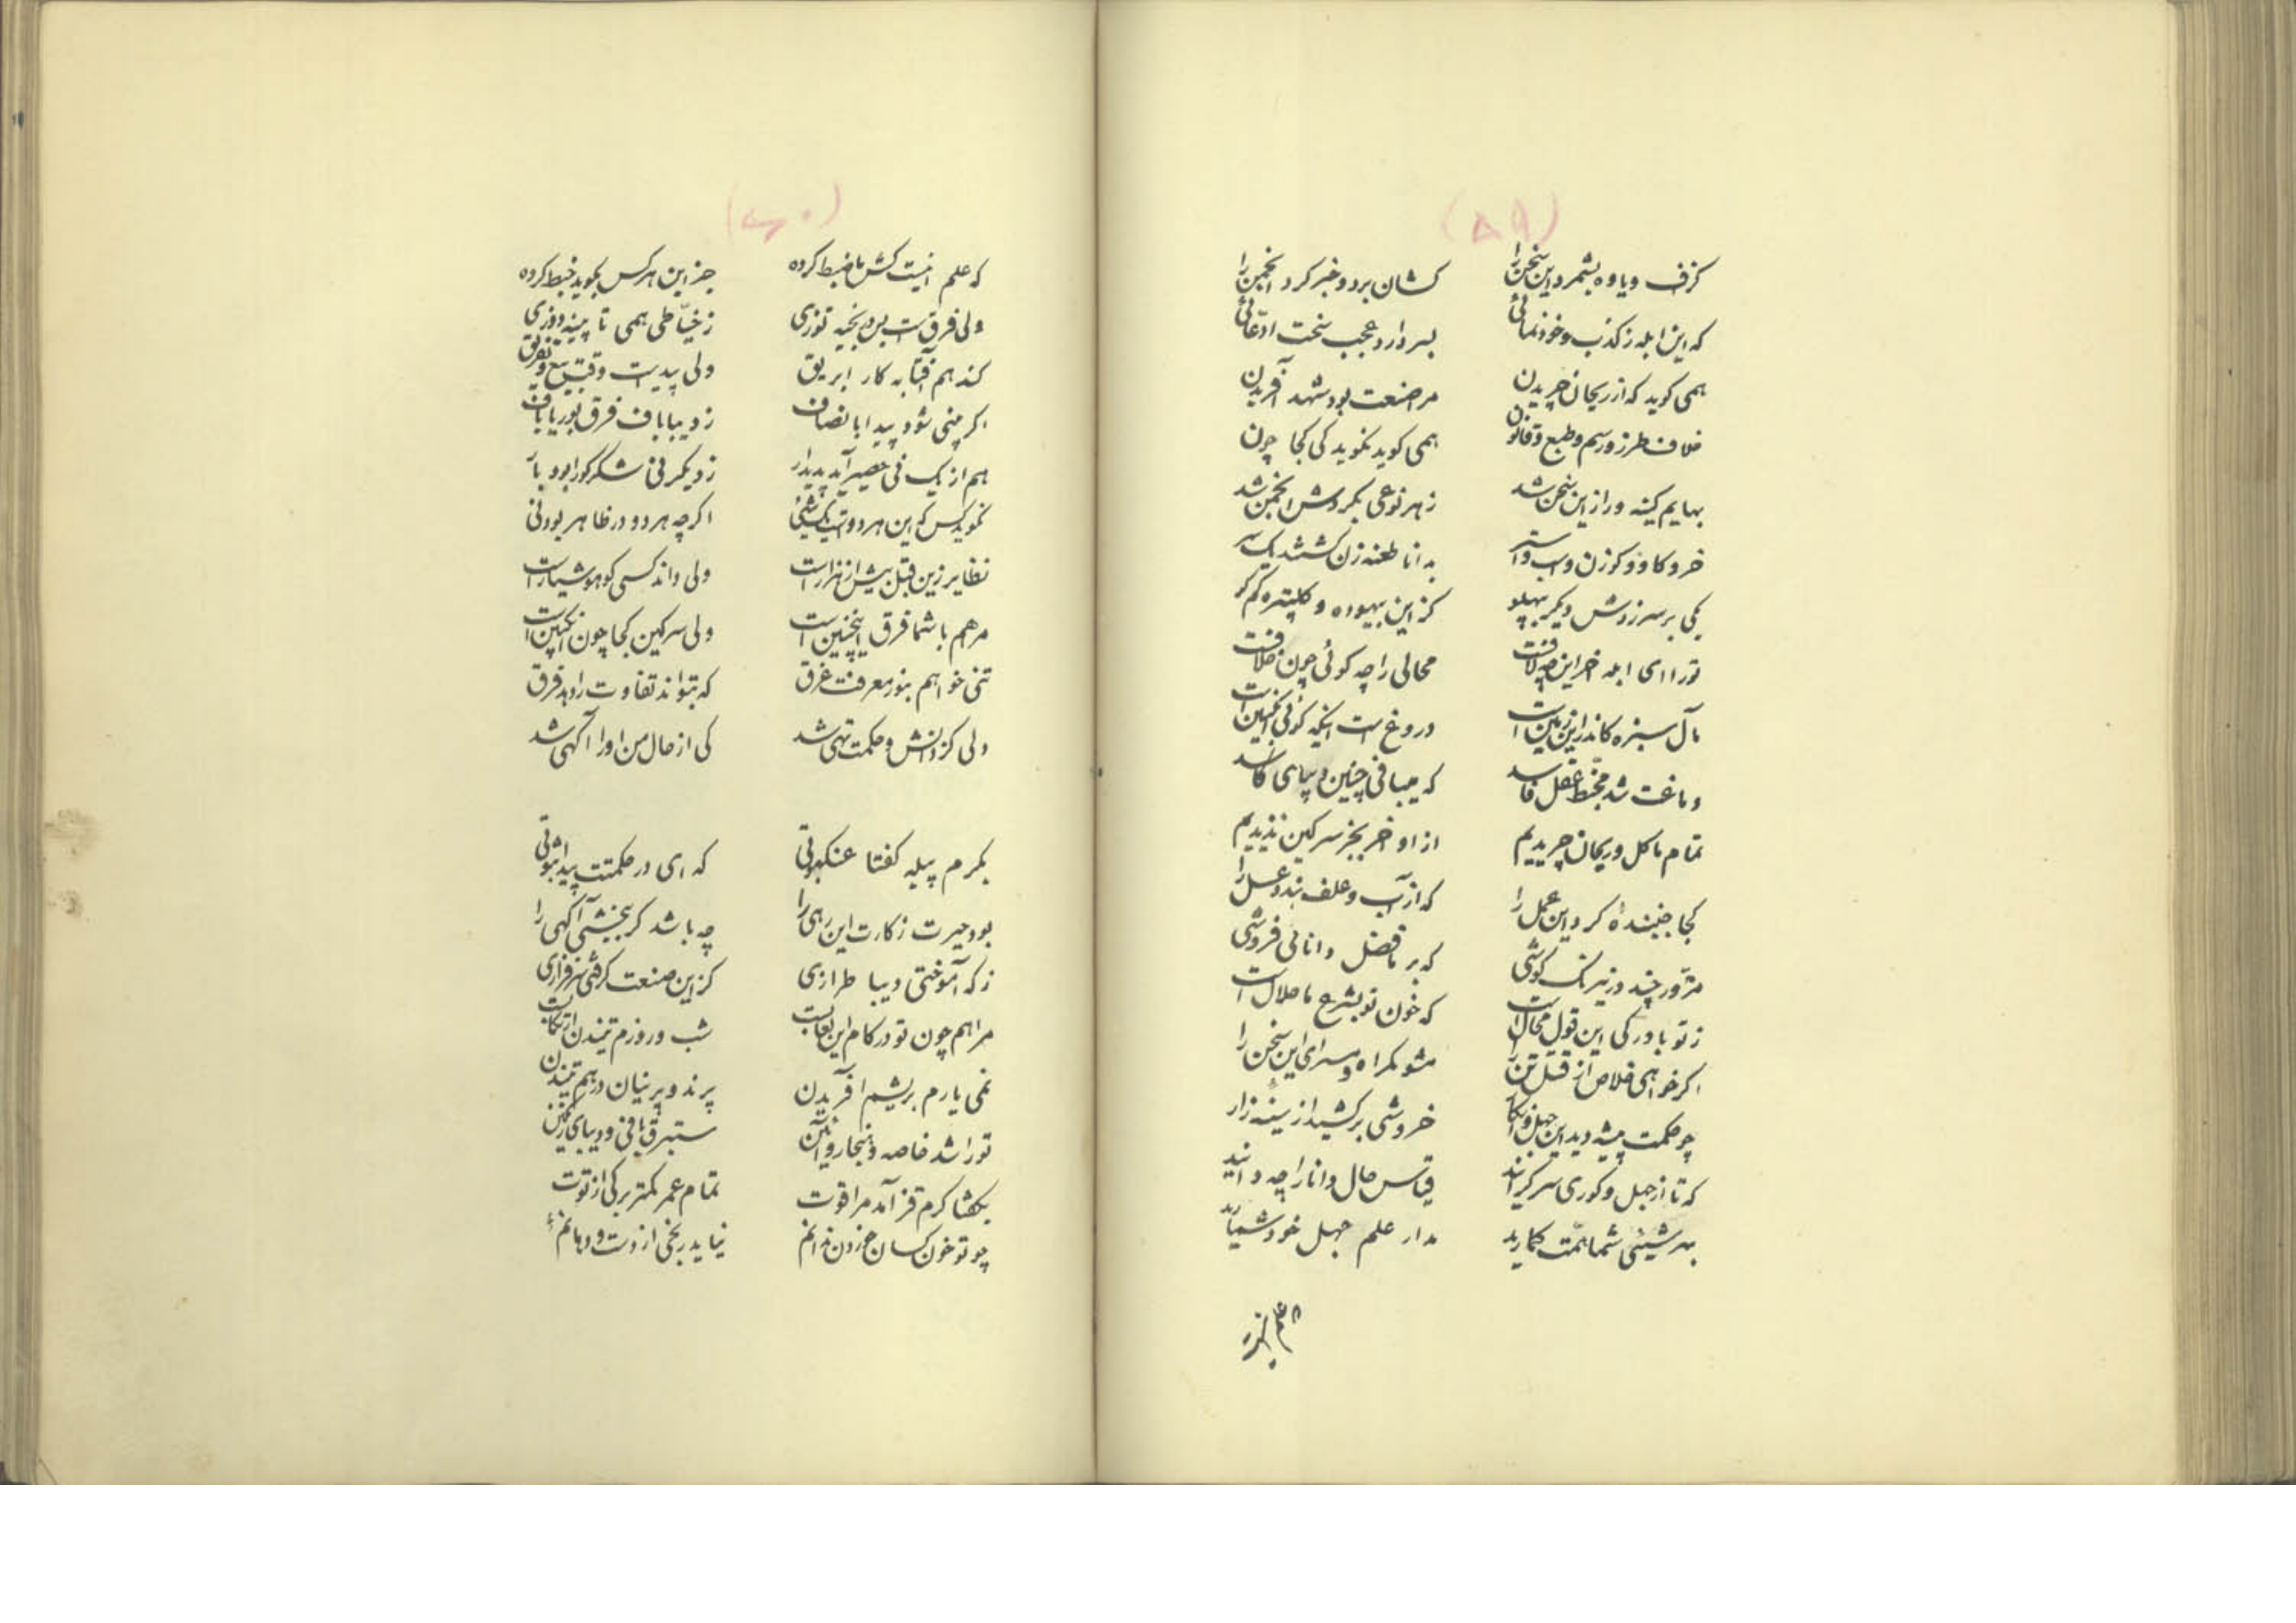 (۵۹)
کزف و یاوه بشمرد این سخن را کشان برد و خبر کرد انجمن را
که این ابله ز کذب و خودنمائی بسر دارد عجب سخت ادعائی
همی کوید که از ریحان چریدن مرا صنعت بود شهد آفریدن
خلاف طرز و رسم و طبع و قانون همی کوید نکوید کی کجا چون
بهایم کینه ور از این سخن شد ز هر نوعی بکردش انجمن شد
خر و کاو و کوزن و اسب و استر بدانا طعنه زن کشتند یکسر
یکی بر سر زدش دیکر بپهلو کز این بیهوده و کلپتره کم کو
تو را ای ابله خر این چه لافت محالی را چه کوئی چون خلافت
مآل سبزه کاندر این زمین است دروغ است اینکه کوئی انکبین است
دماغت شد مخبط عقل فاسد که میبافی چنین دیبای کاسد
تمام ما کل و ریحان چریدیم از او خر بجز سرکین ندیدیم
کجا جنبنده کرد این عمل را که از آب و علف بندد عسل را
مزور چند در نیرنک کوشی که بر ما فضل و دانائی فروشی
ز تو باور کی این قول محال است که خون تو بشرع ما حلال است
اکر خواهی خلاص از قتل تن را مشو کمراه و مسرای این سخن را
چو حکمت پیشه دید این جهل و انکار خروشی برکشید از سینه زار
که تا از جهل و کوری سرکرانید قیاس حال دانا را چه دانید
بهر شیئی شما همت کمارید مدار علم جهل خود شمارید
(۶۰)
که علم اینست کش ما ضبط کرده جز این هرکس بکوید خبط کرده
ولی فرق است بس در بخیه توزی ز خیاطی همی تا پینه دوزی
کند هم آفتابه کار ابریق ولی پیداست وقت بیع و تفریق
اکر منی شود پیدا بانصاف ز دیباباف فرق بوریاباف
هم از یک نی حصیر آید پدیدار ز دیکر نی شکر کورا بود بار
نکوید کس که این هر دو است یک شیئی اکرچه هر دو در ظاهر بود نی
نظایر زین قبل بیش از هزار است ولی داند کسی کو هوشیار است
مرا هم با شما فرق اینچنین است ولی سرکین کجا چون انکبین است
تنی خواهم بنور معرفت غرق که بتواند تفاوت را دهد فرق
ولی کز دانش و حکمت تهی شد کی از حال من او را آکهی شد
بکرم پیله کفتا عنکبوتی که ای در حکمتت پیدا ثبوتی
بود حیرت ز کارت این رهی را چه باشد کر ببخشی آکهی را
ز که آموختی دیبا طرازی کز این صنعت کرفتی سرفرازی
مرا هم چون تو در کام این لعابست شب و روزم تنیدن ارتکابست
نمی یارم بریشم آفریدن پرند و پرنیان درهم تنیدن
تو را شد خاصه هنجار و آئین ستبرق بافی و دیبای رنکین
بکفتا کرم قز آمد مرا قوت تمام عمر کمتر برکی از توت
چو تو خون کسان خوردن ندانم نیاید رنجی از دست و دهانم